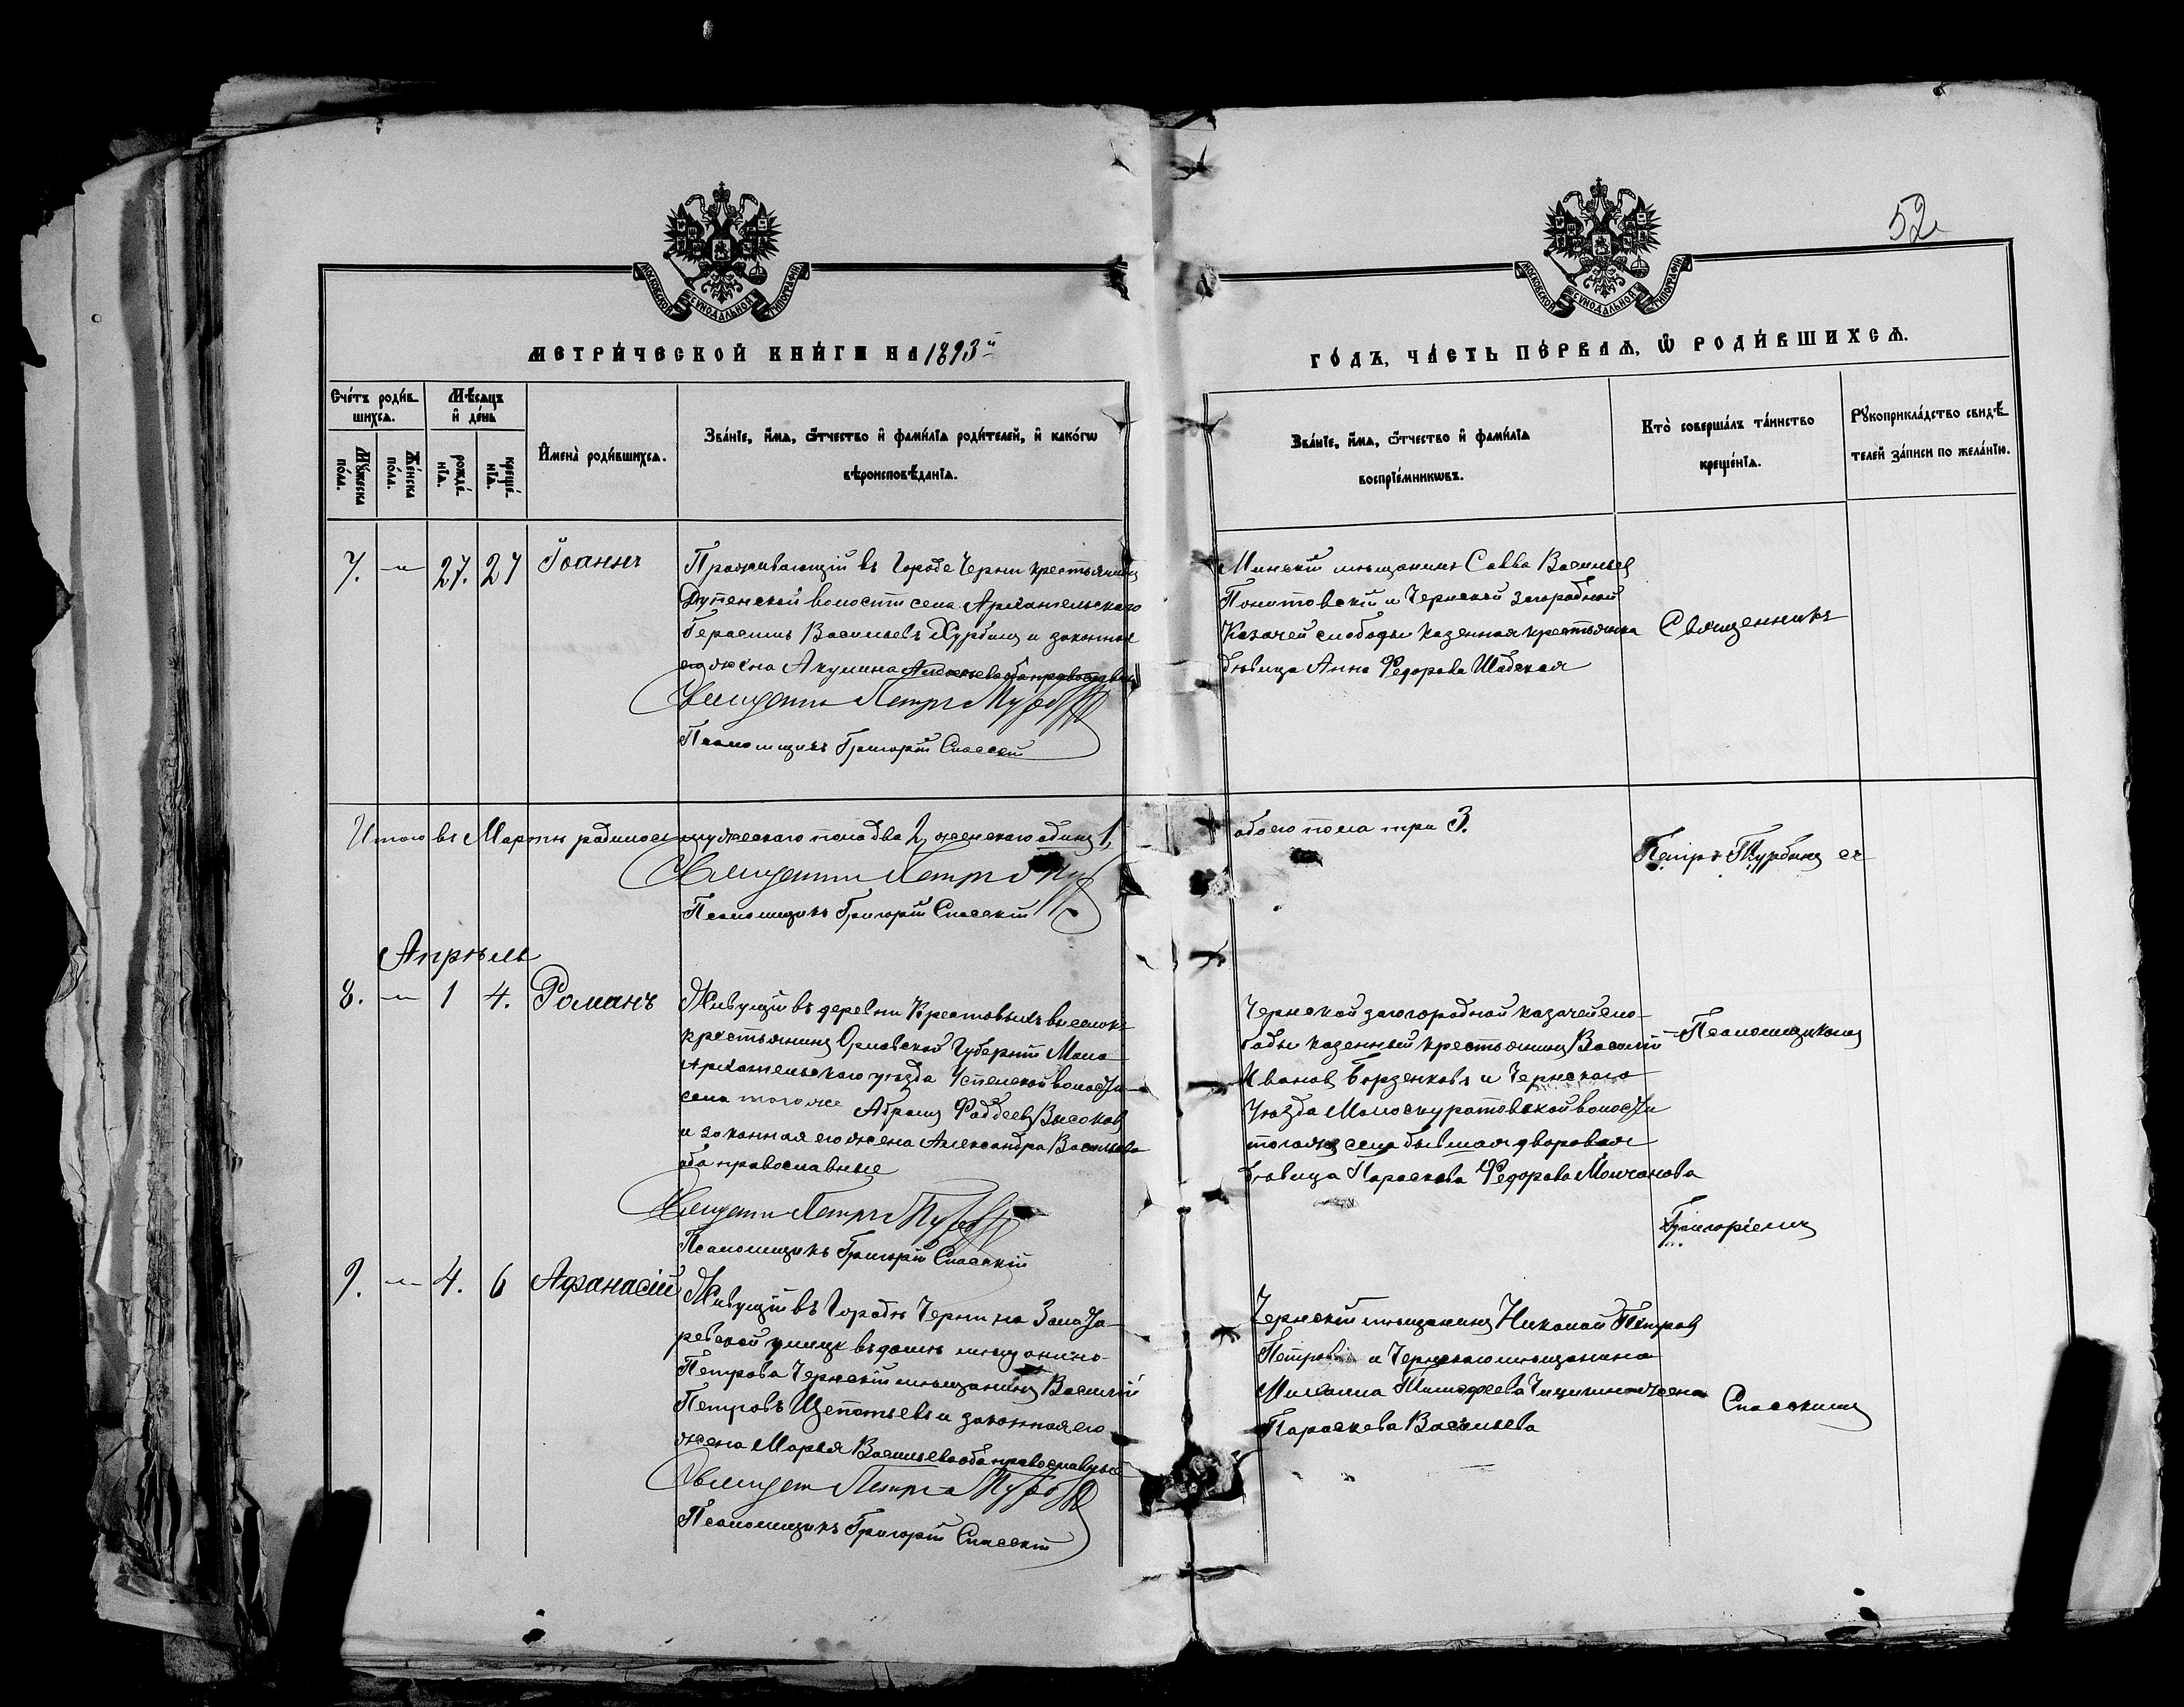 52
МОСКОВСКОЙ СѴНОДАЛЬНОЙ ТИПОГРАФІИ
МОСКОВСКОЙ СѴНОДАЛЬНОЙ ТИПОГРАФІИ
МЕТРИ́ЧЕСКОЙ КНИ́ГИ НА 1893й
ГО́ДЪ, ЧА́СТЬ ПЕ́РВАѦ, Ѡ҆ РОДИ́ВШИХСѦ.
Сче́тъ роди́в
шихсѧ.
Мꙋ́жеска
по́ла.
Же́нска
по́ла.
Мѣ́сѧцъ
и҆ де́нь
рожде́
нїѧ.
креще́
нїѧ.
И҆мена̀ роди́вшихсѧ.
Зва́нїе, и҆́мѧ, ѻ҆́тчество и҆ фами́лїѧ роди́телей, и҆ како́гѡ
вѣроисповѣ́данїѧ.
Зва́нїе, и҆́мѧ, ѻ҆́тчество и҆ фами́лїѧ
воспрїе́мникѡвъ.
Кто̀ соверша́лъ та́инство
креще́нїѧ.
Рꙋкоприкла́дство свидѣ́
телей за́писи по жела́нїю.
7. — 27. 27 Іоаннъ
Проживающій въ Городе Черни крестьянинъ
волости села Архангельскаго
Герасимъ Васильевъ и законная
его жена Акулина
Священникъ Петръ
Псаломщикъ Григорій Спасскій
мещанинъ Савва Васильев
и Чернской загородной
Казачей слободы казенная крестьянка
девица Анна Федорова
Священникъ
Итого въ Мартѣ родилось мужескаго пола два 2, женскаго одинъ 1,
обоего пола три 3.
Священникъ Петръ
Псаломщикъ Григорій Спасскій
Петръ Турбинъ съ
Апрѣль
8. — 1 4. Романъ
Живущій въ деревни Крестовыхъ
крестьянинъ Орловской Губерніи Мало
Архангельскаго уѣзда Успенской волости
села того же Абрамъ Фаддеев Высоков
и законная его жена Александра Васильева
оба православные
Священникъ Петръ
Псаломщикъ Григорій Спасскій
Чернской загородной казачей сло-
боды казенный крестьянинъ Василій
Иванов Борзенковъ и Чернскаго
Уѣзда Малоскуратовской волости
тогожъ села бывшая дворовая
дѣвица Параскева Федорова Молчанова
Псаломщикомъ
Григоріемъ
9. — 4. 6 Афанасій
Живущій въ Городѣ Черни на
улицѣ въ домѣ мещанина
Петрова Чернскій мѣщанинъ Василій
Петровъ Щепотьевъ и законная его
жена Марья Васильева оба православные
Священникъ Петръ
Псаломщикъ Григорій Спасскій
Чернскій мѣщанинъ Николай Петров
Петровъ и Чернскаго мѣщанина
Тимофеева жена
Параскева Васильева
Спасскимъ